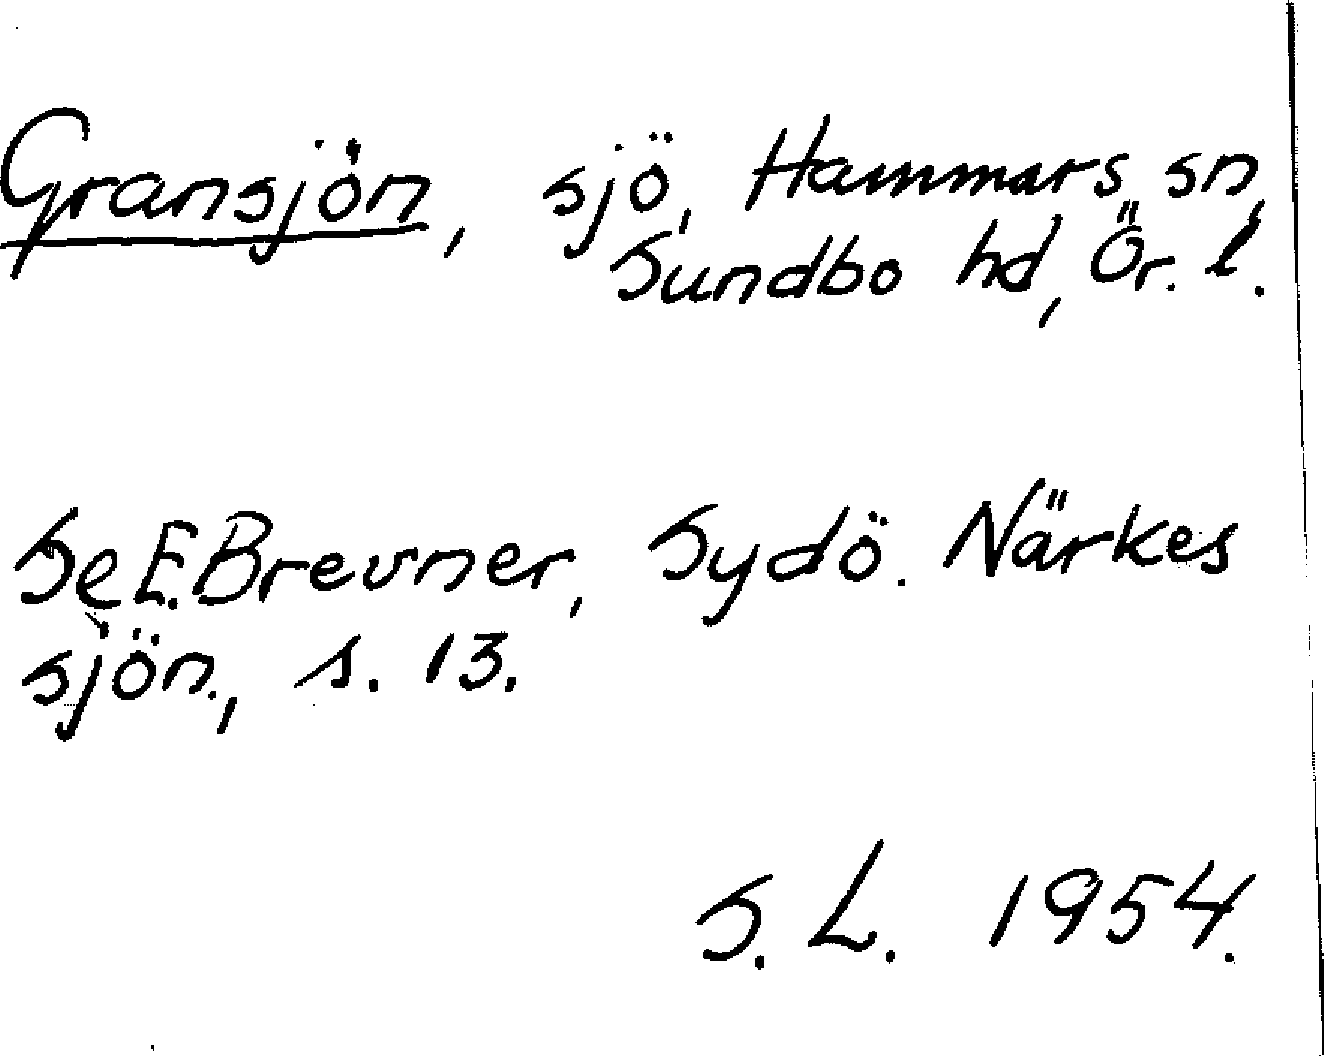 Gransjön, sjö, Hammars sn,
Sundbo hd, Ör. l.
Se E. Brevner, Sydö. Närkes
sjön., s. 13.
S. L. 1954.